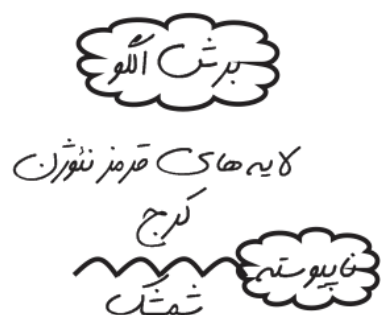 برش الگو
لایه های قرمز نئوژن
کرج
ناپیوسته
شمشک